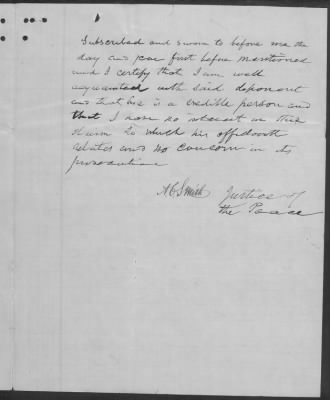 Subscribed and sworn to before me the
day and year first before mentioned
and I certify that I am well
acquainted with said deponent
and that he is a credible person and
that I have no interest in this
claim to which his affidavit
relates and no concern in its
prosecution
A C Smith Justice of
the Peace